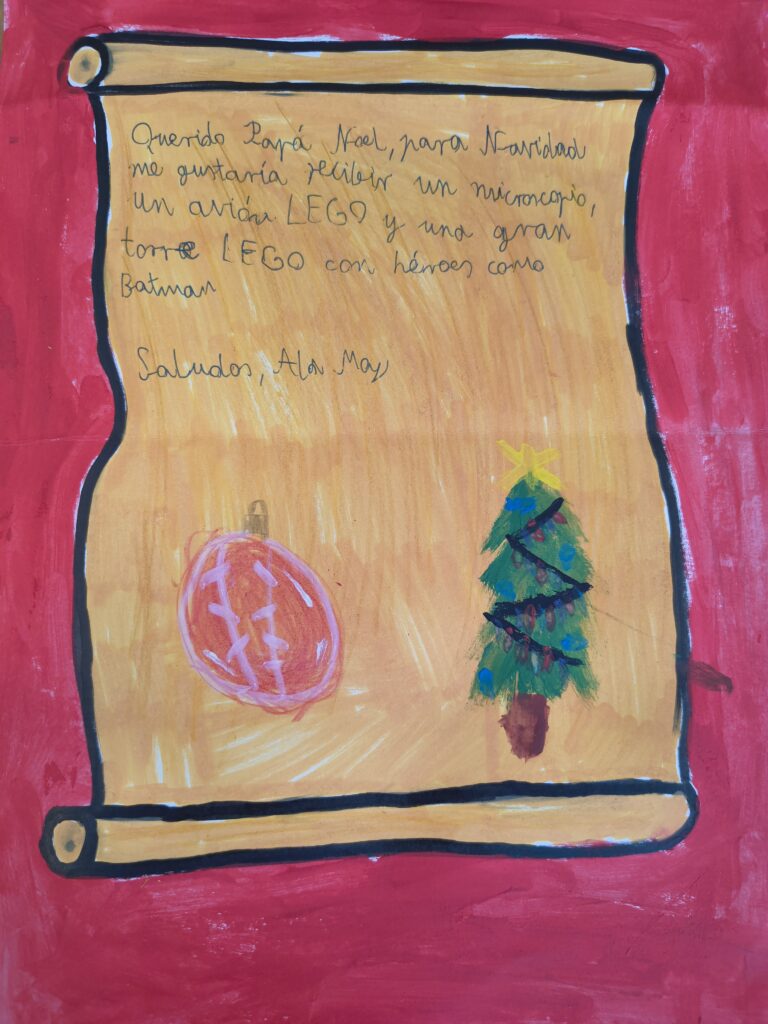 Querido Papá Noel, para Navidad
me gustaría recibir un microscopio,
un avión LEGO y una gran
torre LEGO con héroes como
Batman
Saludos, May